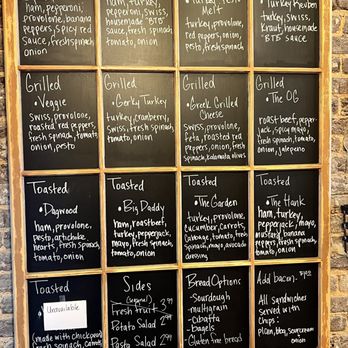 ham, pepperoni,
provolone, banana
peppers, spicy red
sauce, fresh spinach
onion
turkey,
pepperoni, swiss,
housemade "BTB"
sauce, fresh spinach,
tomato, onion
Melt
turkey, provolone,
red peppers, onion,
pesto, fresh spinach
Turkey Reuben
turkey, swiss,
kraut, housemade
"BTB" sauce
Grilled
• Veggie
Swiss, provolone,
roasted red peppers,
fresh spinach, tomato,
onion, pesto
Grilled
• Gerky Turkey
turkey, cranberry,
swiss, fresh spinach,
tomato, onion
Grilled
• Greek Grilled
Cheese
Swiss, provolone,
feta, roasted red
peppers, fresh
spinach, kalamata olives
Grilled
• The OG
roast beef, pepper
jack, spicy mayo,
fresh spinach, tomato,
onion, jalepeno
Toasted
• Dagwood
ham, roastbeef,
provolone,
pesto, artichoke
hearts, fresh spinach,
tomato, onion
Toasted
• Big Daddy
ham, roastbeef,
turkey, pepperjack,
mayo, fresh spinach,
tomato, onion
Toasted
• The Garden
turkey, provolone,
cucumber, carrots,
cabbage, tomato, fresh
spinach, mayo, avocado
dressing
Toasted
• The Hank
ham, turkey,
pepperjack, mayo,
mustard, banana
peppers, fresh spinach,
tomato, onion
Toasted
Unavailable
(made with chickpeas)
fresh spinach, carrots
Sides
Fresh Fruit 3.99
Potato Salad 2.99
Pasta Salad
Bread Options
- Sourdough
- multigrain
- Ciabatta
- bagels
- Gluten free bread
Add bacon
All Sandwiches
Served with
Chips:
plain, bbq, sourcream
onion